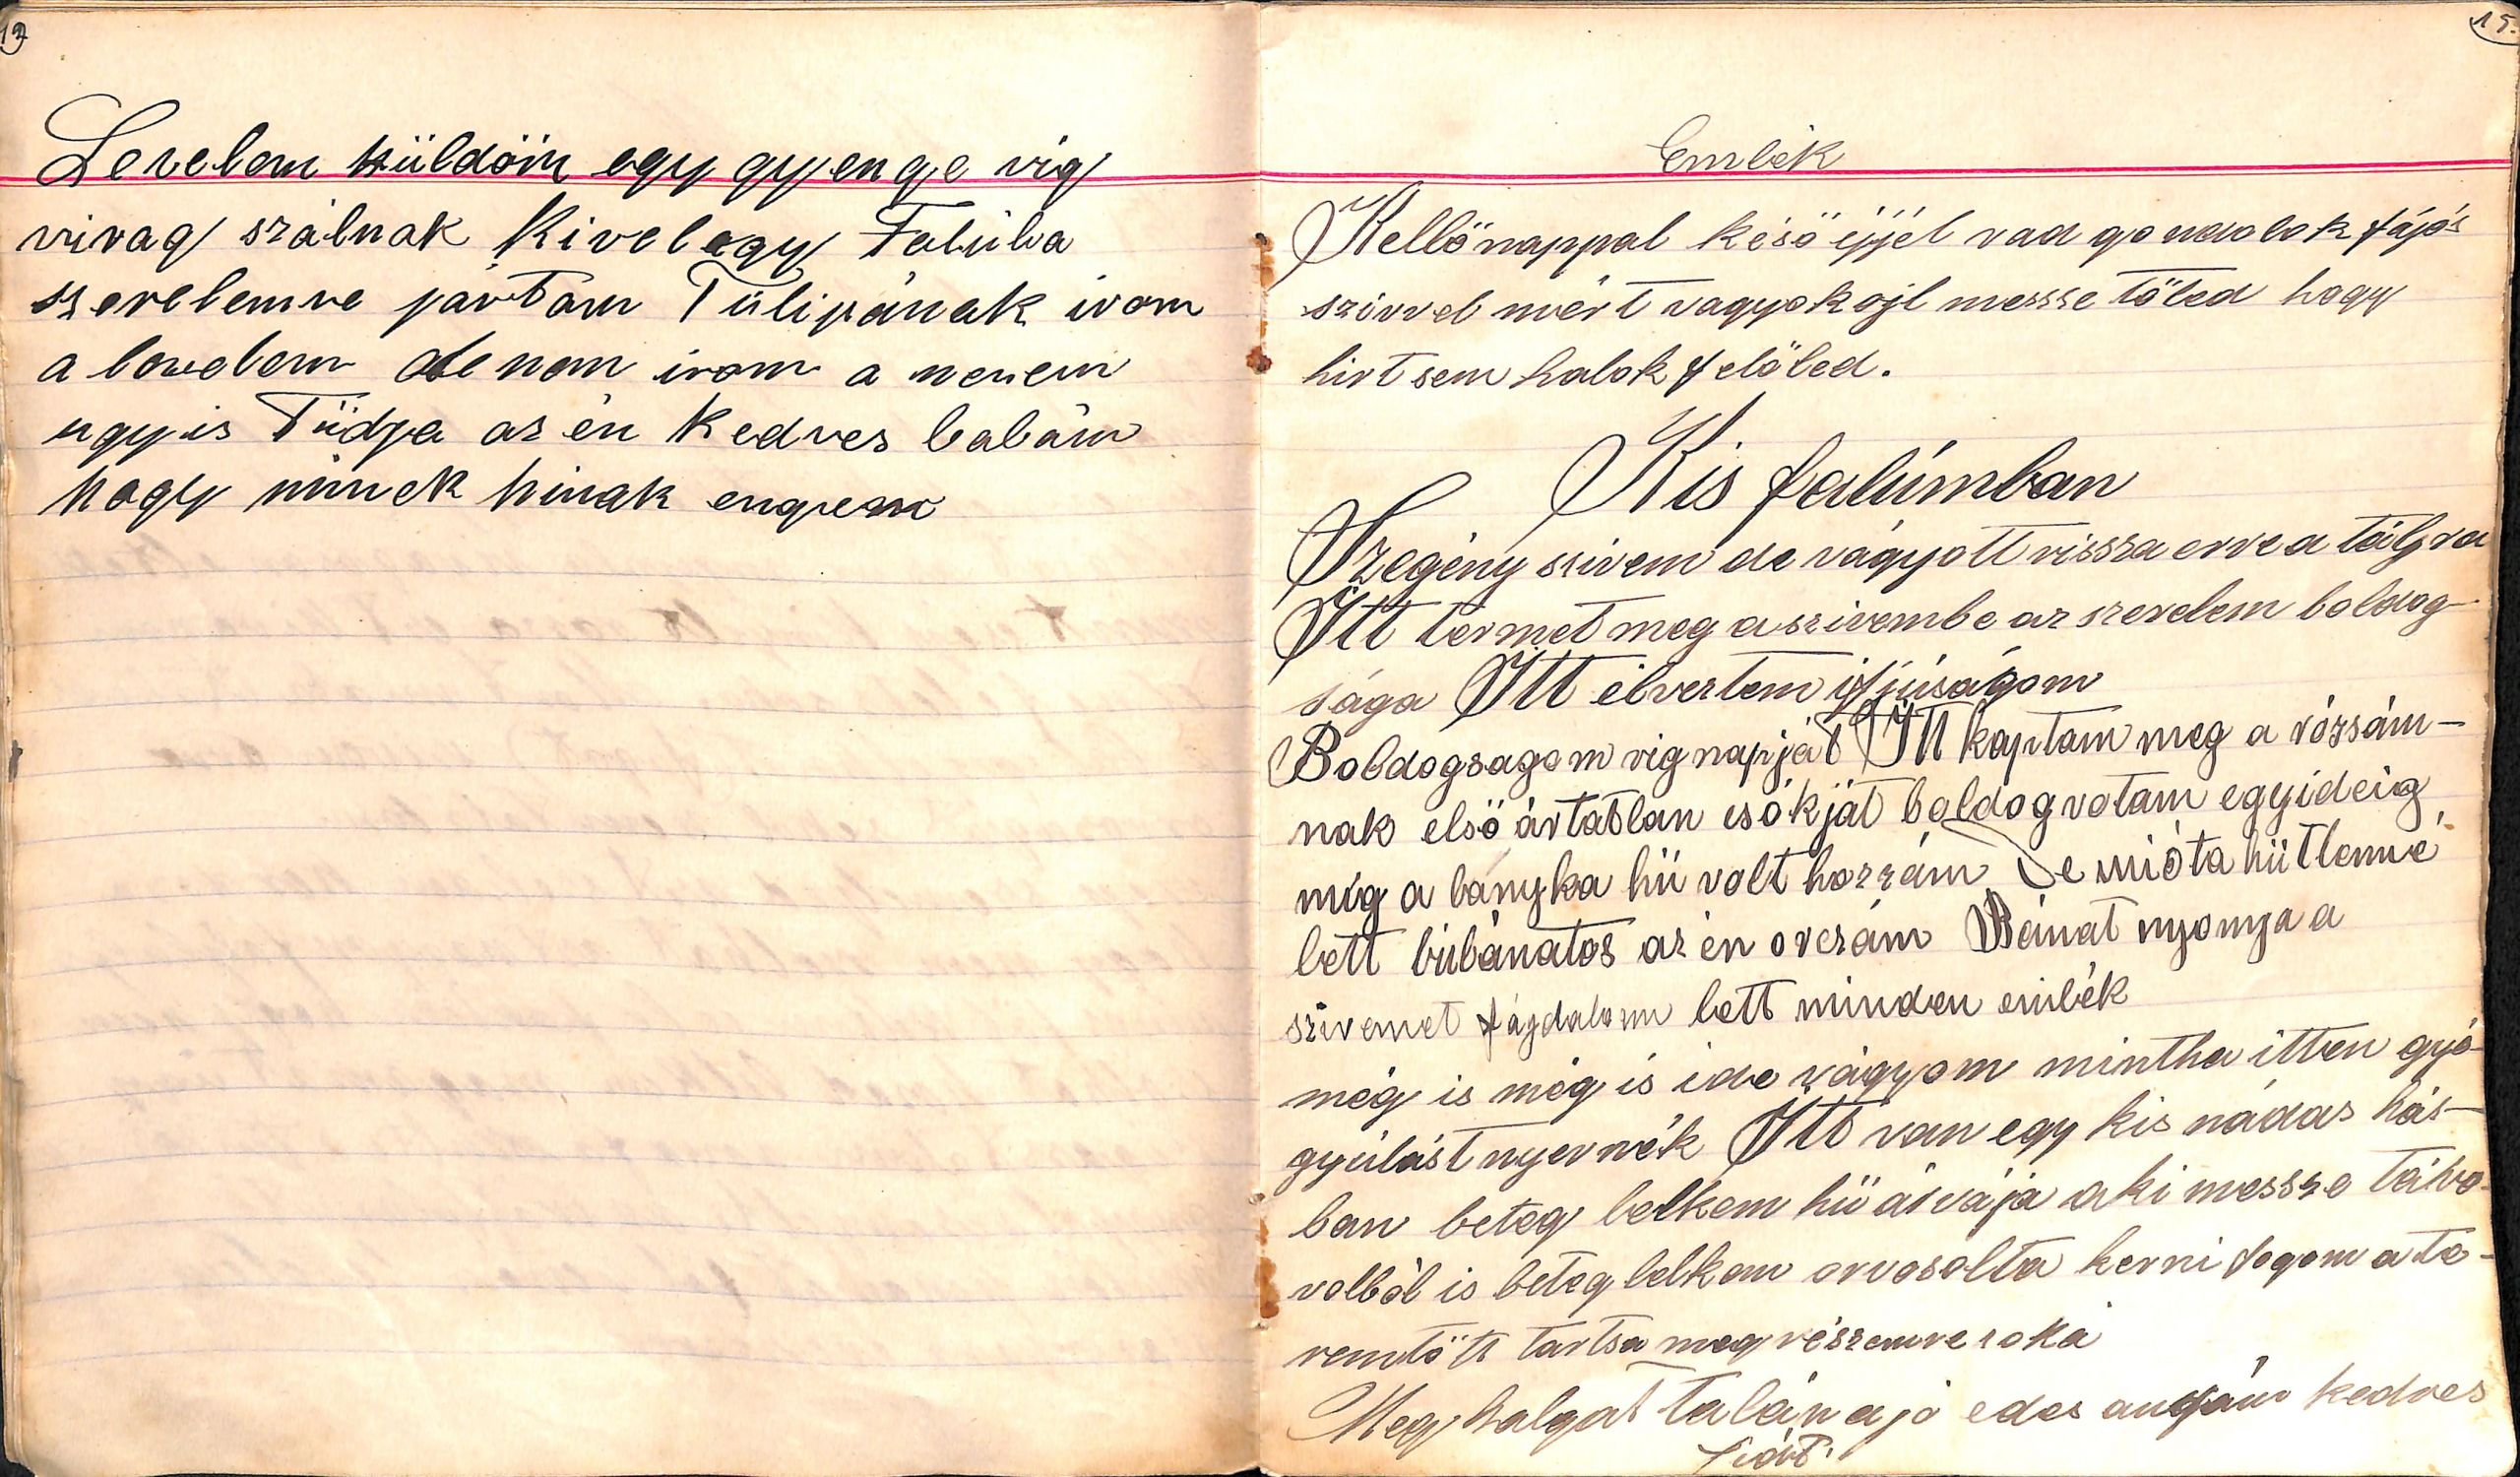 Levelem küldöm egy gyenge vig
virag szálnak Kivel egy Faluba
szerelemre jártam Tulipának irom
a levelem de nem irom a nevem
ugyis Tüdja az én Kedves babám
hogy minek hinak engem
15.
Emlék
Kellö nappal késö éjjel vad gondolok fájós
szivvel mért vagyok ojl messse töled hogy
hirt sem halok felöled.
Kis falúmban
Szegény szivem de vágyott vissza erre a tájra
Itt termet meg a szivembe az szerelem boldog
sága Itt elvertem ifjúságom
Boldogsagom vig napját Itt kaptam meg a rózsám-
nak elsö ártatlan csókját boldog votam egy ideig
mig a lányka hü volt hozzám De mióta hütlenné
lett búbánatos az én orczám Bánat nyomja a
szivemet fájdalom lett minden emlék
még is még is ide vágyom mintha itten gyó-
gyulást nyernék Itt van egy kis nádas ház-
ban beteg lelkem hü ápája aki messze távo-
volból is beteg lelkem orvosolta kerni fogom a te-
remtöt tartsa meg részemre soká
Meg halgat talán a jó edes anyám kedves
fiát.